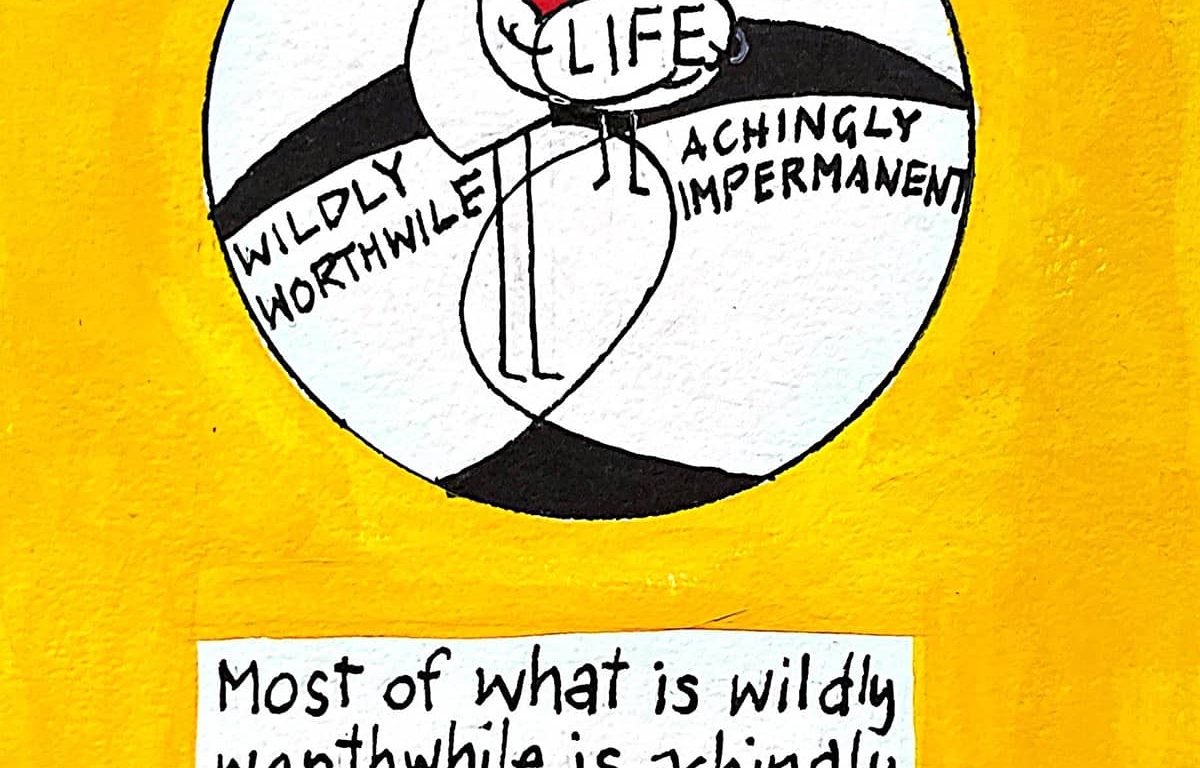 LIFE
WILDLY
WORTHWILE
ACHINGLY
IMPERMANENT
Most of what is wildly
worthwhile is achingly